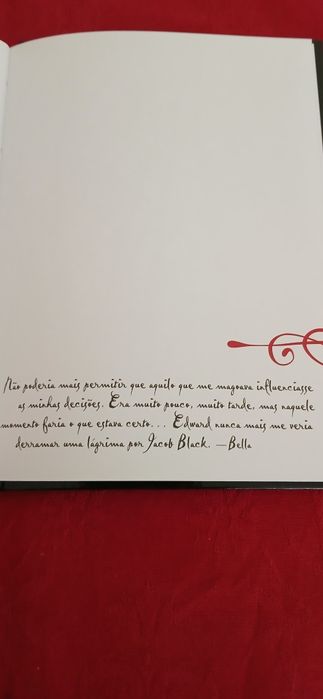 Não poderia mais permitir que aquilo que me magoava influenciasse
as minhas decisões. Era muito pouco, muito tarde, mas naquele
momento faria o que estava certo... Edward nunca mais me veria
derramar uma lágrima por Jacob Black. —Bella